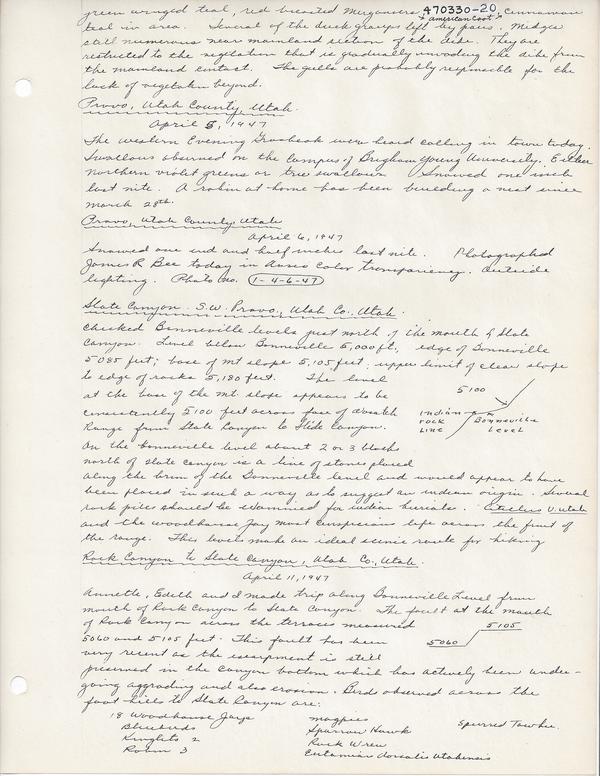 green winged teal, red breasted Mergansers, 470330-20, Cinnamon
teal in area "american Coot". Several of the duck groups left by pairs. Midges
still numerous near mainland section of the dike. They are
restricted to the vegetation that is gradually invading the dike from
the mainland contact. The gulls are probably responsible for the
lack of vegetation beyond.
Provo, Utah County, Utah.
April 5, 1947
The western Evening Grosbeak were heard calling in town today.
Swallows observed on the Campus of Brigham Young University. Either
northern violet greens or tree swallows. Snowed one inch
last nite. A robin at home has been building a nest since
march 28th.
Provo, Utah County, Utah
April 6, 1947
Snowed one and half inches last nite. Photographed
James R Bee today in Ansco Color transparency. Outside
lighting. Photo no. 1-4-6-47
Slate Canyon - S.W. Provo, Utah Co., Utah.
Checked Bonneville levels just north of the mouth of Slate
Canyon. Level below Bonneville 5,000 ft., edge of Bonneville
5085 feet; base of mt slope 5,105 feet; upper limit of clear slope
to edge of rocks 5,180 feet. The level
at the base of the mt slope appears to be
consistently 5100 feet across face of Wasatch
Range from Slate Canyon to Slide Canyon.
5100
Indian rock line
Bonneville Level
On the Bonneville level about 2 or 3 blocks
north of slate canyon is a line of stones placed
along the brim of the Bonneville level and would appear to have
been placed in such a way as to suggest an indian origin. Several
rock piles should be examined for indian burials. Citellus v. utah
and the woodhouse Jay most conspicuous life across the front of
the range. This levels make an ideal scenic route for hiking
Rock Canyon to Slate Canyon, Utah Co., Utah.
April 11, 1947
Annette, Edith and I made trip along Bonneville Level from
mouth of Rock Canyon to Slate Canyon. The fault at the mouth
of Rock Canyon across the terraces measured
5060 and 5105 feet. This fault has been
very recent as the escarpment is still
5060 5105
preserved in the canyon bottom which has actively been under-
going aggrading and also erosion. Birds observed across the
foot hills to Slate Canyon are:
18 Woodhouse Jays magpies Spurred Towhee
Bluebirds Sparrow Hawk
Kinglets 2 Rock Wren
Robin 3 Eutamias dorsalis utahensis